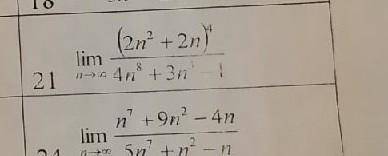 21 lim n→∞ (2n² + 2n)⁴ / 4n⁸ + 3n - 1
lim n→∞ n⁷ + 9n² − 4n / 5n⁷ + n² − n